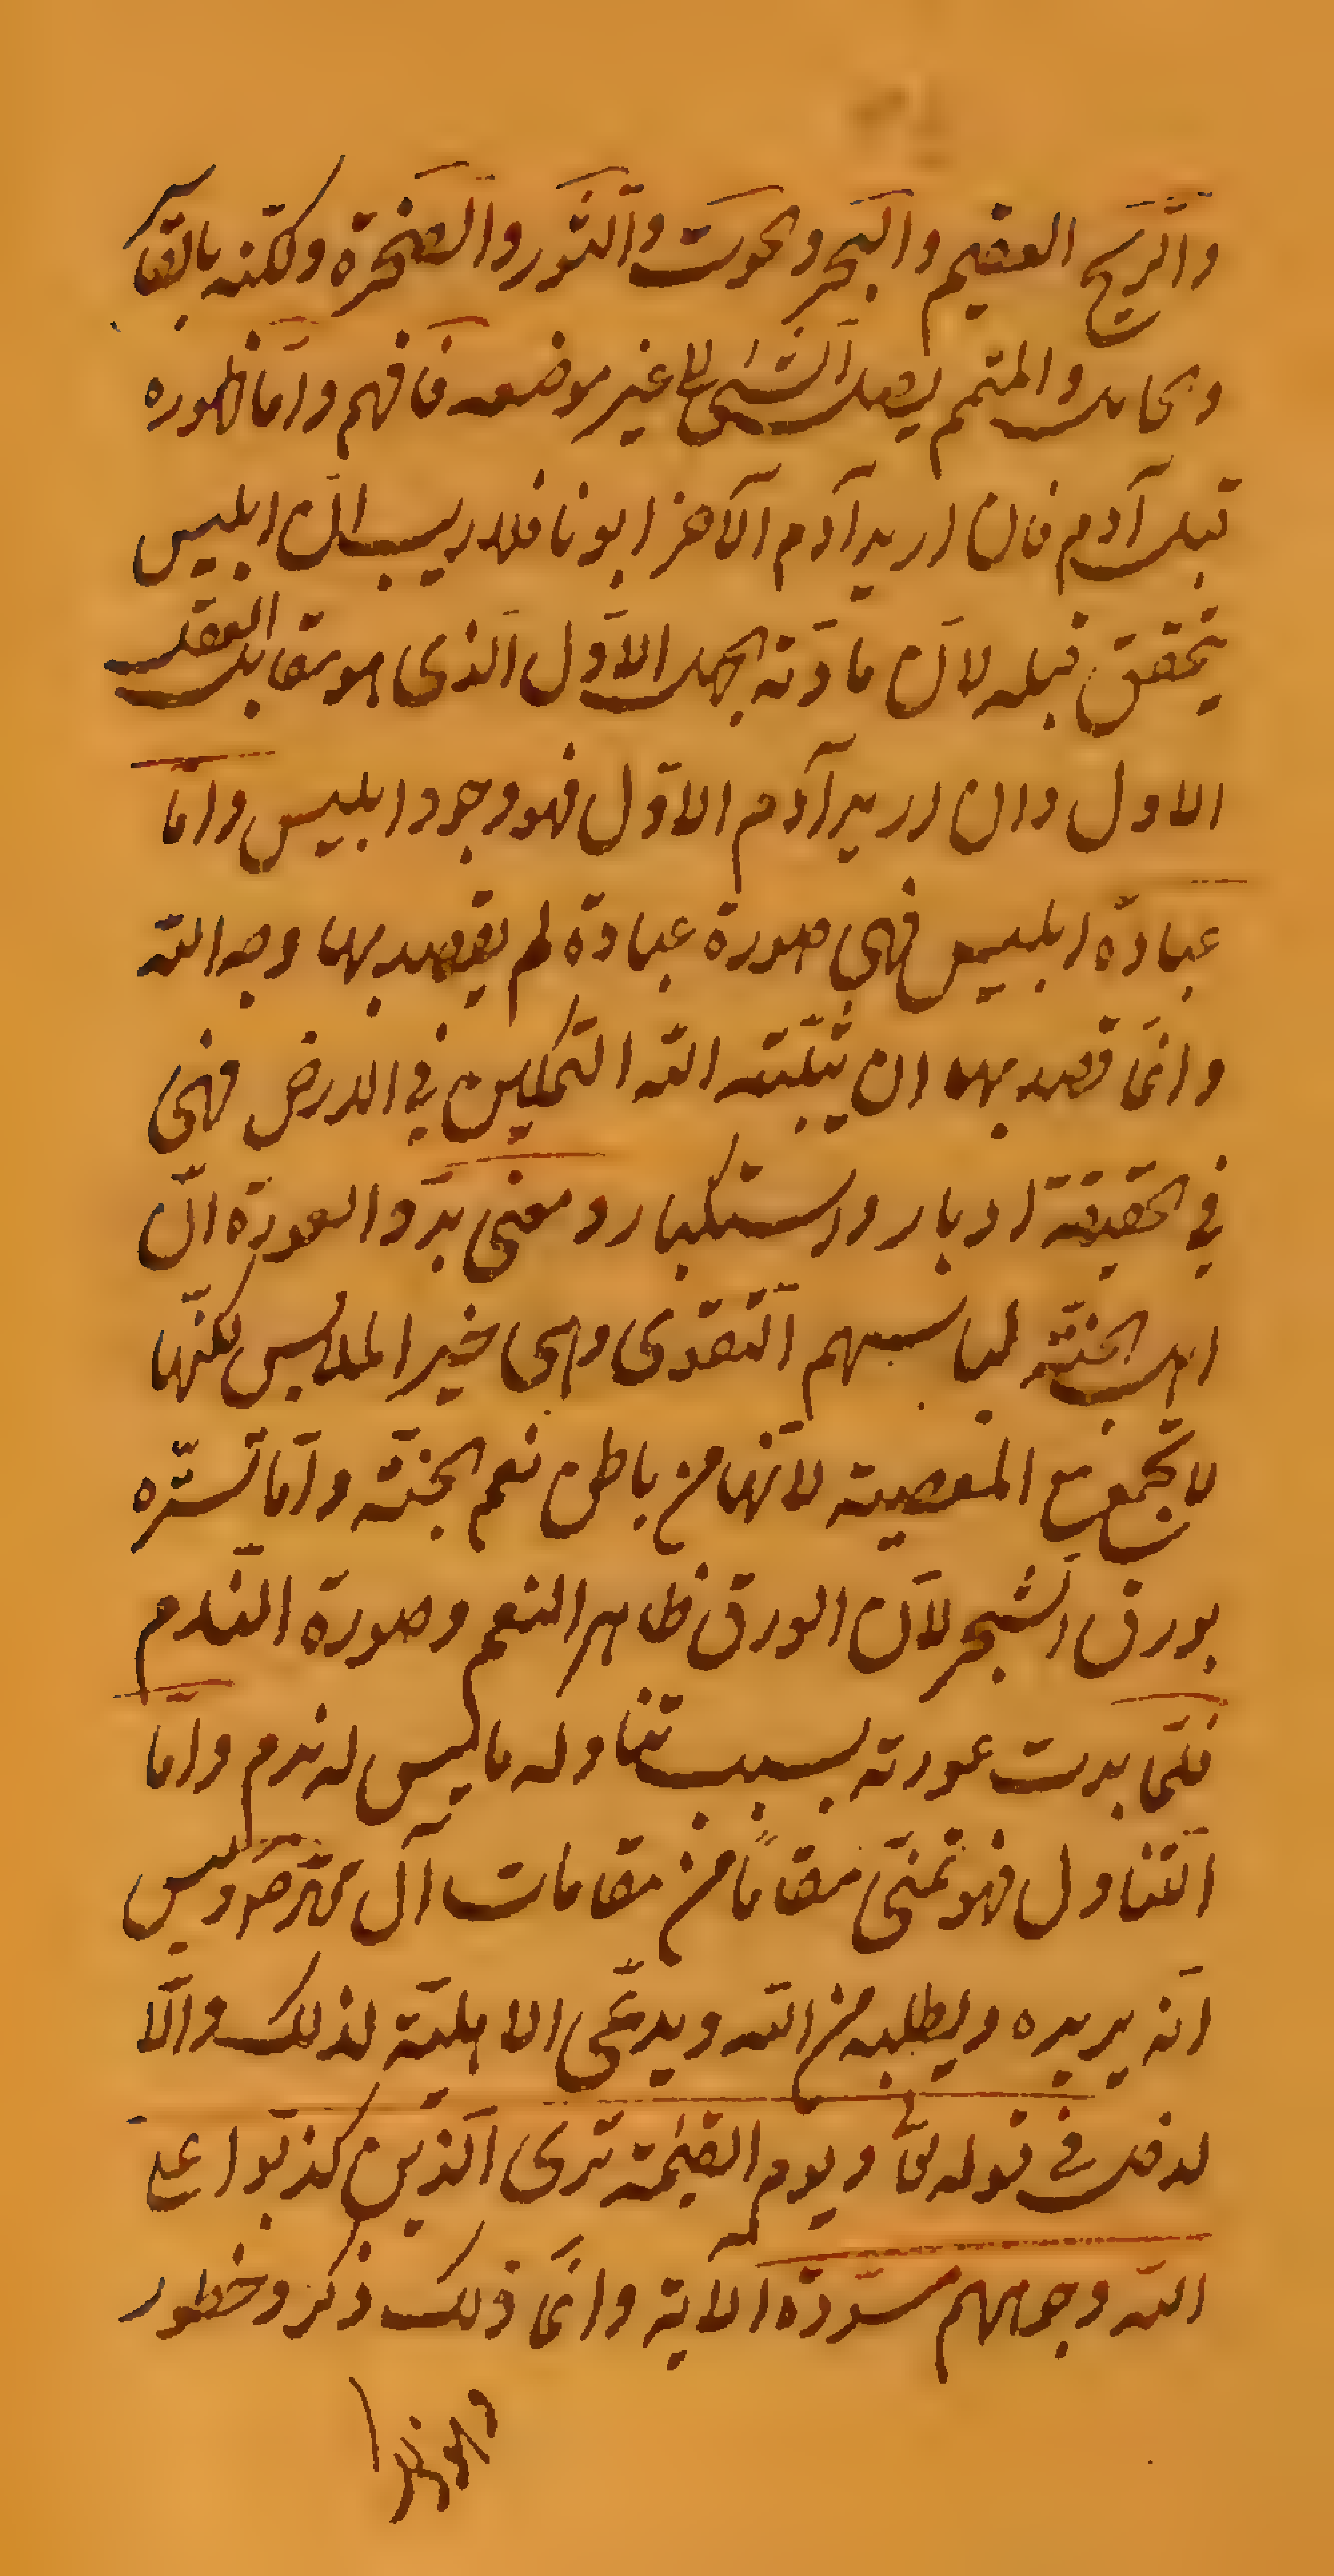 والرّيح العقيم والبحر والحوت والثّور والصّخرة ولكنه بالقاء
وبحامل والمتمم يصل الشئ الى غير موضعه فافهم وامّا ظهوره
قبل آدم فان اريد آدم الآخر ابونا فلا ريب انّ ابليس
يتحقق قبله لانّ مادّته الجهل الاوّل الّذى هو مقابل العقل
الاول وان اريد آدم الاوّل فهو وجود ابليس وامّا
عبادة ابليس فهى صورة عبادة لم يقصد بها وجه اللّه
وانّما قصد بها ان يثبّته اللّه التّمكين فى الارض فهى
فى الحقيقة ادبار واستكبار ومعنى بدوّ العورة انّ
اهل الجنّة لباسهم التّقوى وهى خير الملابس لكنّها
لا تجتمع مع المعصية لانّها من باطن نعم الجنّة وامّا تستّره
بورق الشّجر لانّ الورق ظاهر النعم وصورة النّدم
فلمّا بدت عورته بسبب تناوله ما ليس له ندم وامّا
التّناول فهو تمنّى مقامًا من مقامات آل محمّد ص وليس
انّه يريده ويطلبه من اللّه ويدّعى الاهليّة لذلك والّا
لدخل فى قوله تعالى ويوم القيٰمة ترى الّذين كذبوا على
اللّه وجوههم مسودّة الآية وانّما ذلك ذكر وخطور